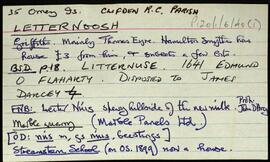 35 Omey 93. CLIFDEN R.C. PARISH
P120/6/40(1)
LETTERNOOSH
Griffiths. Mainly Thomas Eyre. Hamilton Smythe has
house £3 from him, & sublets a few lots.
BSD p48. LITTERNUSE. 1641 EDMUND
O FLAHARTY. DISPOSED TO JAMES
DARCEY
FNB: Leitir Nuis spewy hillside of the new milk.
Marble quarry (Marble Panels Ltd.)
[OD: nús m, gs nuis, beestings]
Streamstown School (on OS. 1899) now a house.